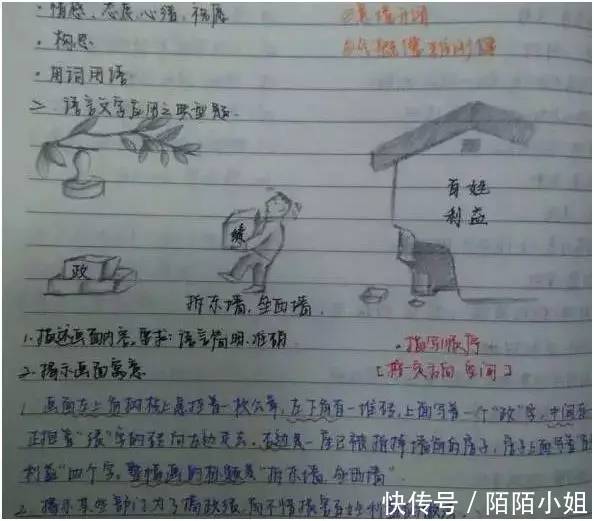 ·情感、态度、心绪、祝愿
·构思
·用词用语
2、语言文字应用之典型题
百姓
利益
绩
政
拆东墙,垒西墙
1.描述画面内容,要求:语言简明、准确
·描写顺序
2.揭示画面寓意
1、画面左上角的树枝上悬挂着一枚公章,左下角有一堆砖,上面写着一个"政"字,中间
正抱着"绩"字的砖向左边走去,右边是一座已被拆掉墙面的房子,房子上面写着"百姓
利益"四个字,整幅画的标题是"拆东墙,垒西墙"
2、揭示某些部门为了搞政绩,而不惜损害百姓利益
快传号/陌陌小姐